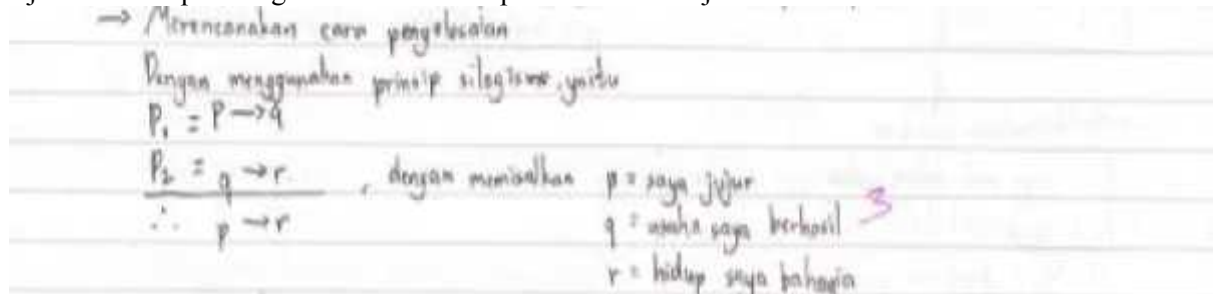 → Merencanakan cara penyelesaian
Dengan menggunakan prinsip silogisme, yaitu
P₁ = P → q
P₂ = q → r , dengan memisalkan p = saya jujur
∴ p → r q = usaha saya berhasil 3
r = hidup saya bahagia